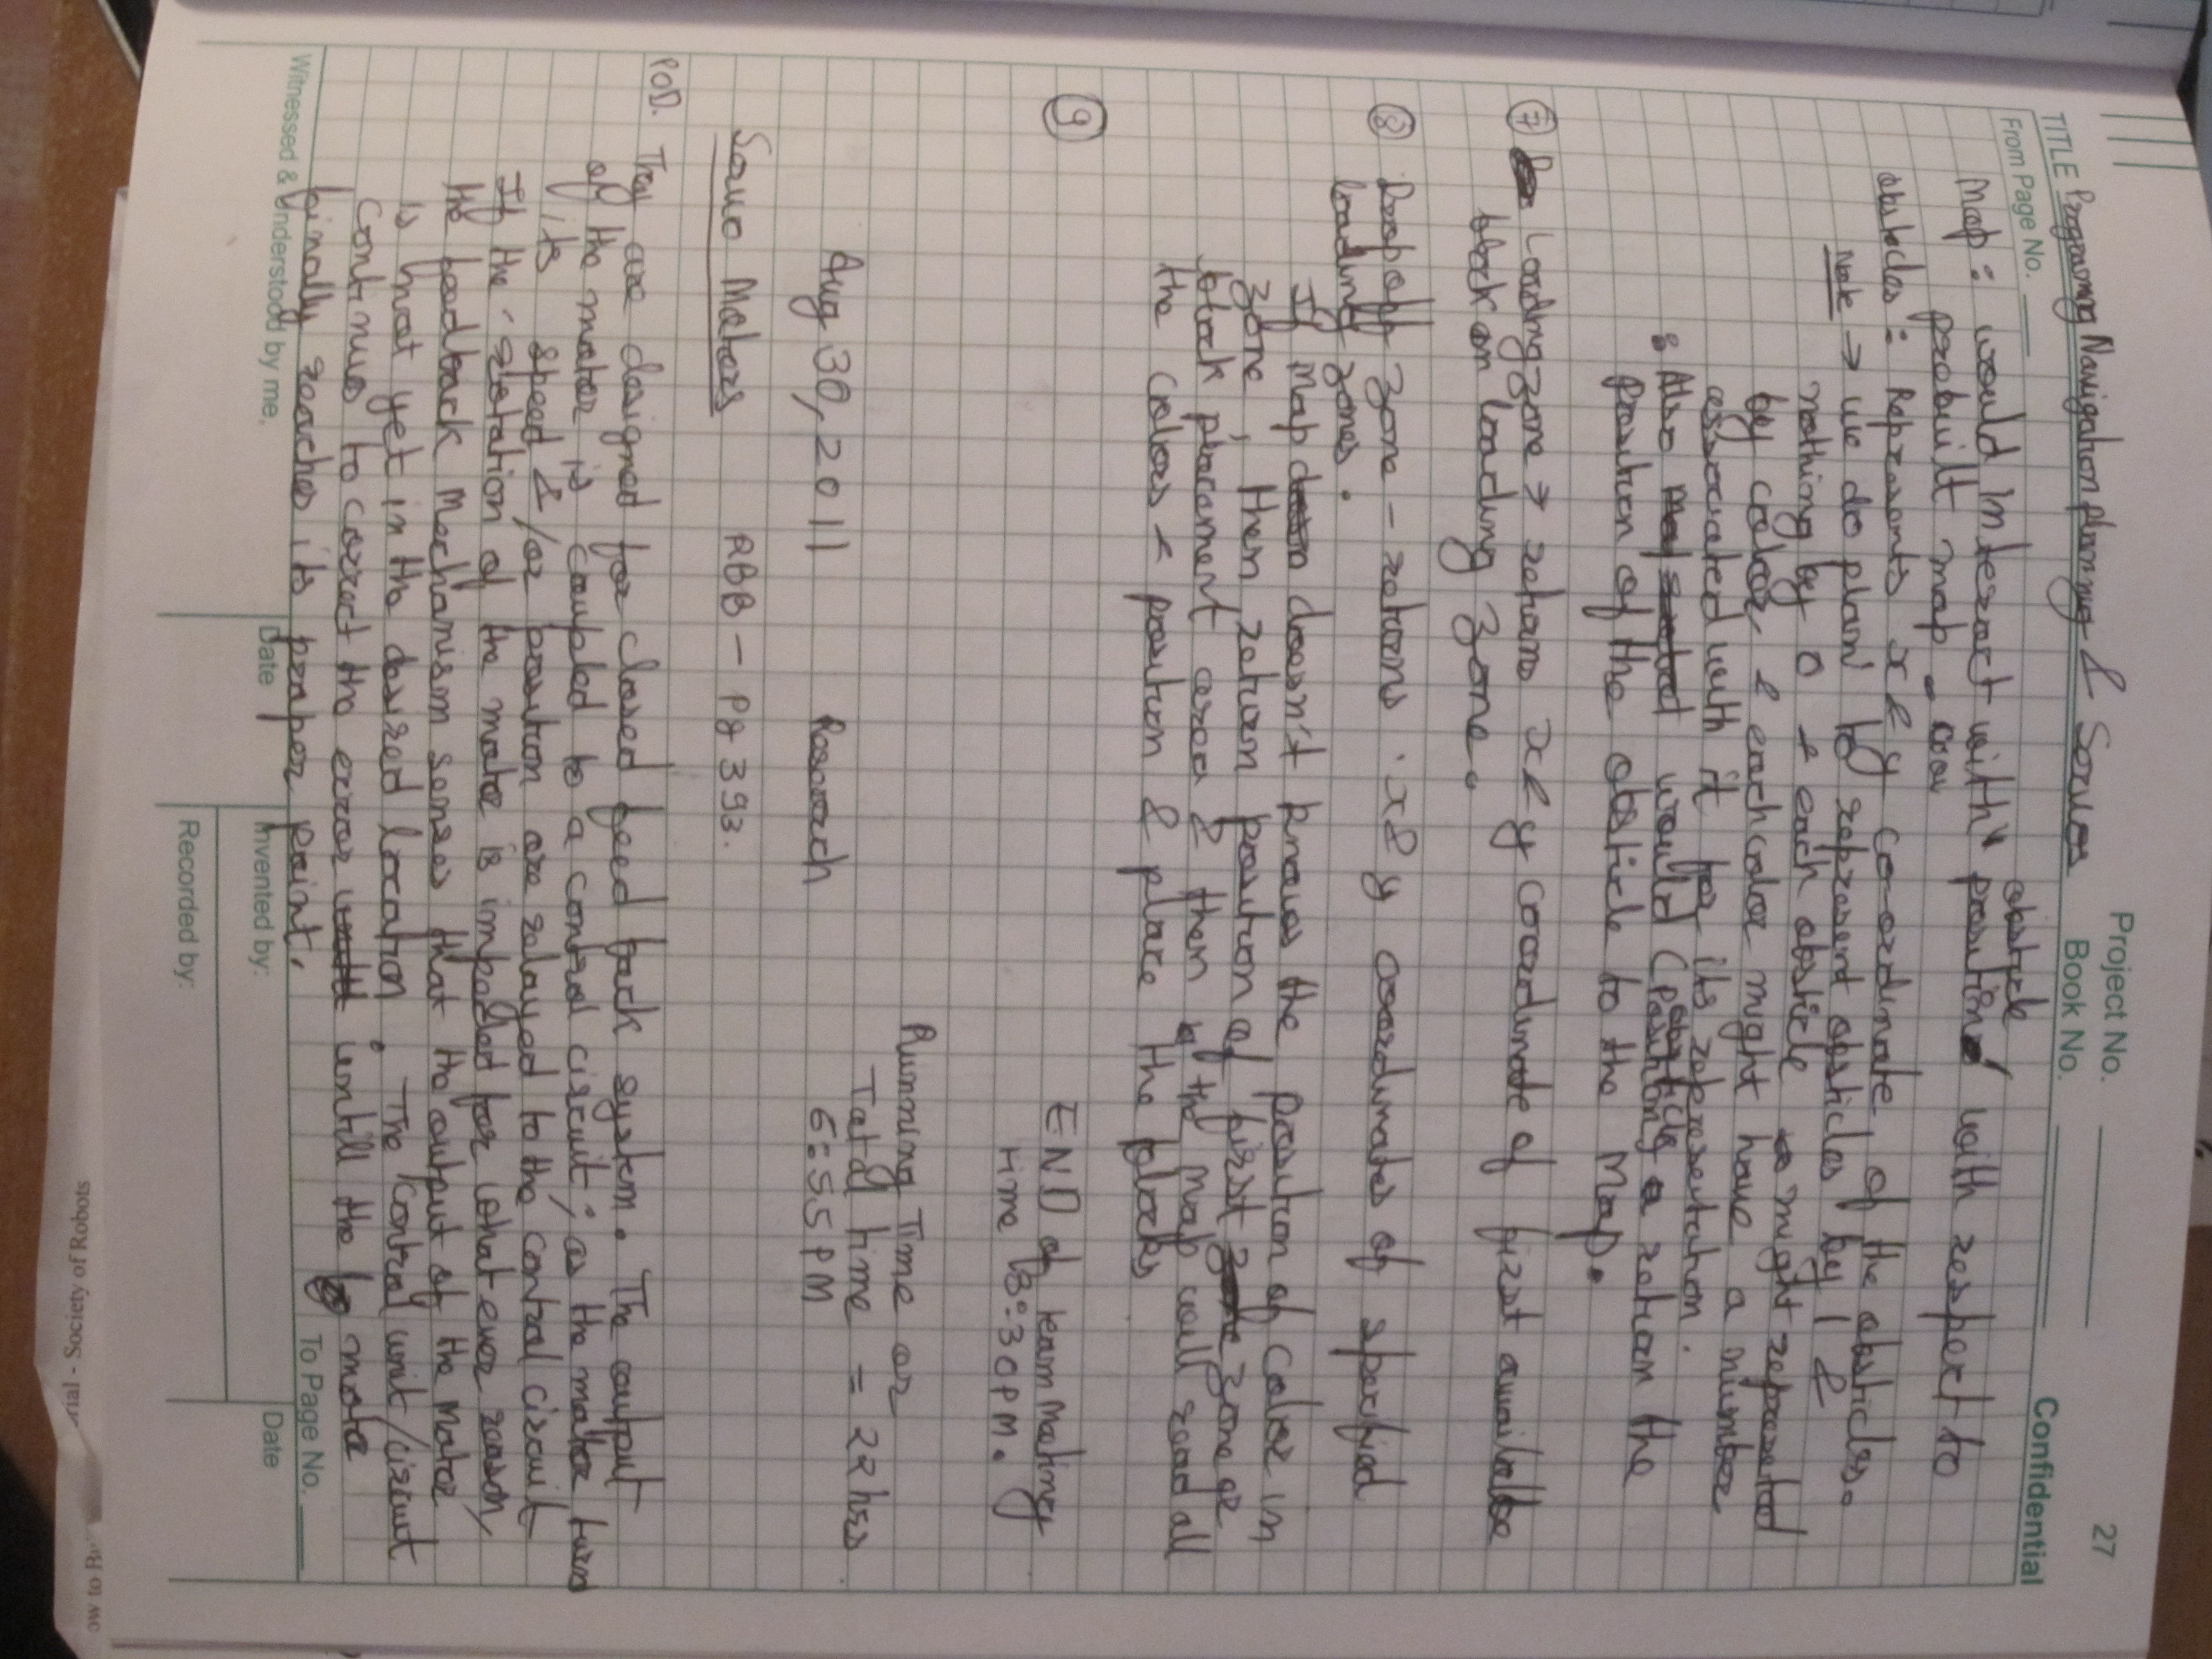 TITLE Programing Navigation planning & Servos
Project No.
Book No.
27
Confidential
From Page No.
obsticle
Map : would interact with position, with respect to
prebuilt map
obsticles : Represents x & y co-ordinate of the obsticles.
Note → we do plan to represent obsticles by 1 &
nothing by 0 & each obsticle might represented
by color & each color might have a number
associated with it for its representation.
: Also would (obsticle Position) return the
Position of the obsticle to the Map.
⑦ Loading zone → return x & y coordinate of first available
block on loading zone.
⑧ Dropoff zone – returns x & y coordinates of specified
loading zones.
If map doesn't knows the position of color in
zone, then return position of first zone or
block placement area & then the map will read all
the colors & position & place the blocks
⑨
END of team Meeting
time 8:30 PM.
Running Time or
Total time = 22 hrs
Aug 30, 2011 Research 6:55 PM
Servo Motors RBB – Pg 393.
POD. They are designed for closed feed back system. The output
of the motor is coupled to a control circuit; as the motor turns
its speed &/or position are relayed to the control circuit
If the rotation of the motor is impeded for what ever reason,
the feedback mechanism senses that the output of the motor
is not yet in the desired location. The control unit/circuit
continues to correct the error untill the motor
finally reaches its proper point.
To Page No.
Witnessed & Understood by me,
Date
Invented by:
Date
Recorded by:
ow to Bu
orial - Society of Robots